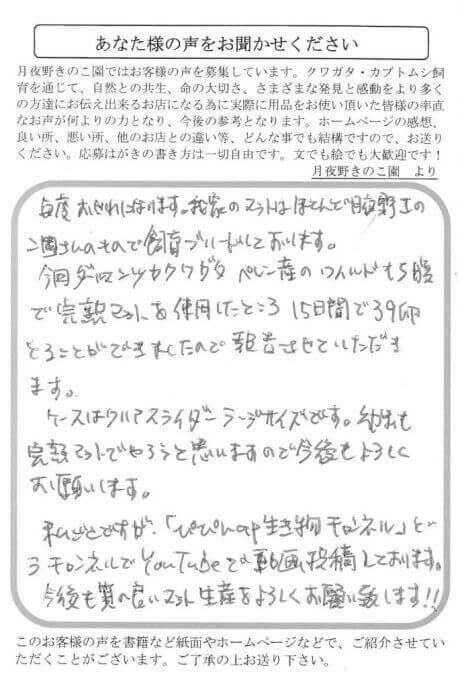 あなた様の声をお聞かせください
月夜野きのこ園ではお客様の声を募集しています。クワガタ・カブトムシ飼
育を通じて、自然との共生、命の大切さ、さまざまな発見と感動をより多く
の方達にお伝え出来るお店になる為に実際に用品をお使い頂いた皆様の率直
なお声が何よりの力となり、今後の参考となります。ホームページの感想、
良い所、悪い所、他のお店との違い等、どんな事でも結構ですので、お送り
ください。応募はがきの書き方は一切自由です。文でも絵でも大歓迎です！
月夜野きのこ園　より
毎度お世話になります。我家のマットはほとんど月夜野きの
こ園さんのもので飼育ブリードしております。
今回ダイオウヒラタクワガタ ペレン産のワイルド
で完熟マットを使用したところ 15日間で39卵
とることができましたので 報告させていただき
ます。
ケースはクリアスライダーラージサイズです。幼虫も
完熟マットでやろうと思いますので今後もよろしく
お願いします。
私ごとですが、「ぴぴんup生き物チャンネル」と
うチャンネルでYouTubeで動画投稿しております。
今後も質の良いマット生産をよろしくお願い致します!!
このお客様の声を書籍など紙面やホームページなどで、ご紹介させてい
ただくことがございます。ご了承の上お送り下さい。